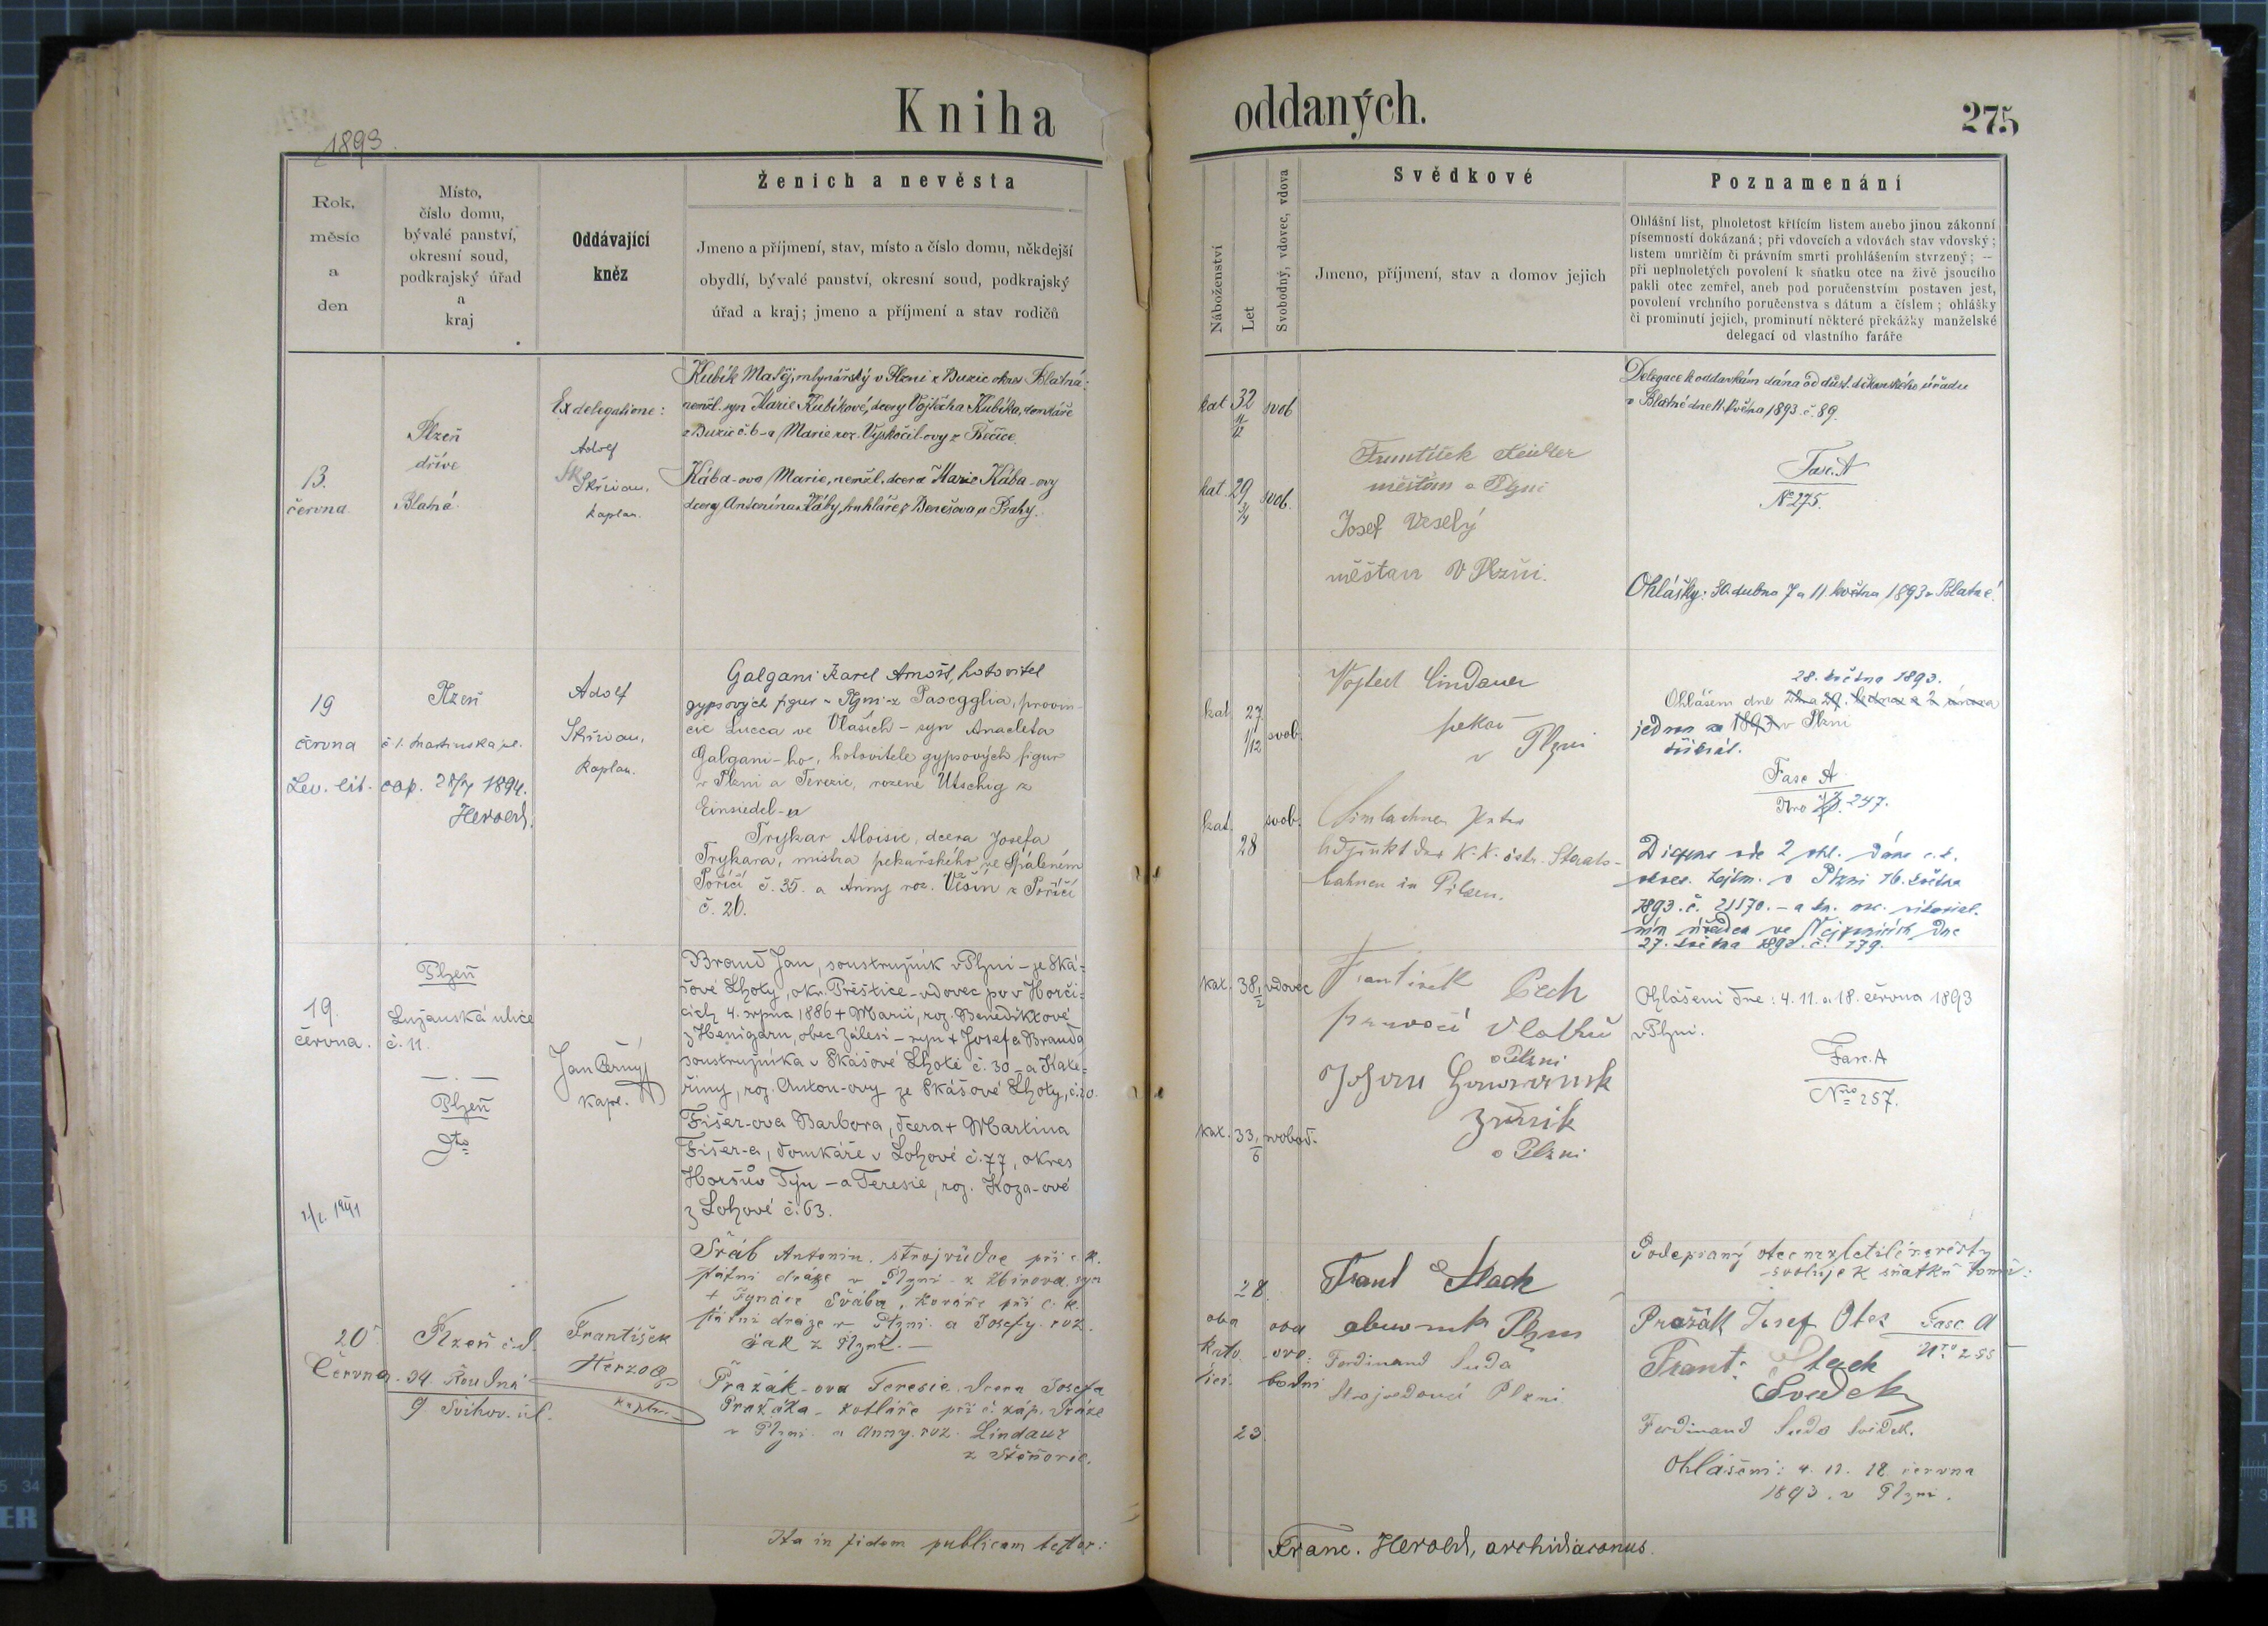 Kniha
oddaných.
275
1893.
Rok,
měsíc
a
den
Místo,
číslo domu,
bývalé panství,
okresní soud,
podkrajský úřad
a
kraj
Oddávající
kněz
Ženich a nevěsta
Jmeno a příjmení, stav, místo a číslo domu, někdejší
obydlí, bývalé panství, okresní soud, podkrajský
úřad a kraj; jmeno a příjmení a stav rodičů
Náboženství
Let
Svobodný, vdovec, vdova
Svědkové
Jmeno, příjmení, stav a domov jejich
Poznamenání
Ohlášní list, plnoletost křtícím listem anebo jinou zákonní
písemností dokázaná; při vdovcích a vdovách stav vdovský;
listem umrlčím či právním smrti prohlášením stvrzený; —
při neplnoletých povolení k sňatku otce na živě jsoucího
pakli otec zemřel, aneb pod poručenstvím postaven jest,
povolení vrchního poručenstva s dátum a číslem; ohlášky
či prominutí jejich, prominutí některé překážky manželské
delegací od vlastního faráře
13.
června
Plzeň
dříve
Blatná
Ex delegatione:
Adolf
Skřivan,
kaplan.
Kubík Matěj, mlynářský v Plzni z Buzic okres Blatná:
nemžl. syn Marie Kubíkové, dcery Vojtěcha Kubíka, domkáře
z Buzic č. 6 a Marie roz. Vyskočil-ovy z
Kába-ova Marie, nemžl. dcera Marie Kába-ovy
dcery Antonína Káby, truhláře z Benešova u Prahy.
kat. 32 svob.
kat. 29 svob.
František
měšťan v Plzni
Josef Veselý
měšťan v Plzni.
Delegace k oddavkám dána od důst. děkanského úřadu
v Blatné dne 11. května 1893. č. 89.
Fasc. A
No 275.
Ohlášky: 30. dubna 7 a 11. května 1893 v Blatné.
19
června
Lev. lit. cop. 28/7 1894.
Herold.
Plzeň
č 1. Martinská ul.
Adolf
Skřivan,
kaplan.
Galgani Karel Arnošt, hotovitel
gypsových figur v Plzni z Pasegglia, provin-
cie Lucca ve Vlaších – syn Anacleta
Galgani-ho, hotovitele gypsových figur
v Plzni a Terezie, rozené Utschig z
Einsiedel-u
Trykar Aloisie, dcera Josefa
Trykara, mistra pekařského ve Spáleném
Poříčí č. 35. a Anny roz. Věšín z Poříčí
č. 20.
kat. 27 1/12 svob.
kat. 28 svob.
Vojtěch Lindauer
pekař
v Plzni
Adjunkt der K. K. östr. Staats-
bahnen in Pilsen.
28. května 1893.
Ohlášeni dne
jednou v Plzni
Fasc A
Nro 247.
Dispens ode 2 ohl. dána c. k.
okres. hejtm. v Plzni 16. května
1893. č. 21170. – a
27. května 1893. č. 179.
19.
června.
2/2. 1941
Plzeň
Lužanská ulice
č. 11.
Plzeň
dto
Jan Černý
kapl.
Braud Jan, soustružník v Plzni – ze Ská-
šové Lhoty, okr. Přeštice – vdovec po v Horči-
cích 4. srpna 1886 + Marii, roz. Benediktové
z Henigaru, obec Zálesí – syn + Josefa Brauda
soustružníka v Skášové Lhotě č. 30 – a Kate-
řiny, roz. Anton-ovy ze Skášové Lhoty, č. 20.
Fišer-ova Barbora, dcera + Martina
Fišer-a, domkáře v Lohové č. 77, okres
Horšův Týn – a Teresie, roz. Koza-ové
z Lohové č. 63.
kat. 38 1/2 vdovec
kat. 33 1/6 svobod.
František Čech
v Plzni
v Plzni
Ohlášeni dne: 4. 11. a 18. června 1893
v Plzni.
Fasc. A
Nro 257.
20
Června
Plzeň č. d.
34. Roudná
9 Švihov. ul.
František
Herzog
kaplan
Šváb Antonín, strojvůdce při c. k.
státní dráze v Plzni z Zbirova, syn
+ Ignáce Švába, kováře při c. k.
státní dráze v Plzni a Josefy roz.
Žák z Plzně. —
Pražák-ova Teresie, dcera Josefa
Pražáka – kotláře při č. záp. dráze
v Plzni a Anny roz. Lindaur
z Štěňovic.
oba
kato
líci.
28
23
oba
svo:
bodni
Frant Stach
obuvník Plzni
Ferdinand Suda
Strojvedoucí Plzni
Podepsaný otec nezletilé nevěsty
svoluje k sňatku tomu:
Pražák Josef Otec
Fasc A
Nro 255
Frant. Stach
Svědek
Ferdinand Suda svědek.
Ohlášeni: 4. 11. 18. června
1893. v Plzni.
Ita in fidem publicam testor:
Franc. Herold, archidiaconus.